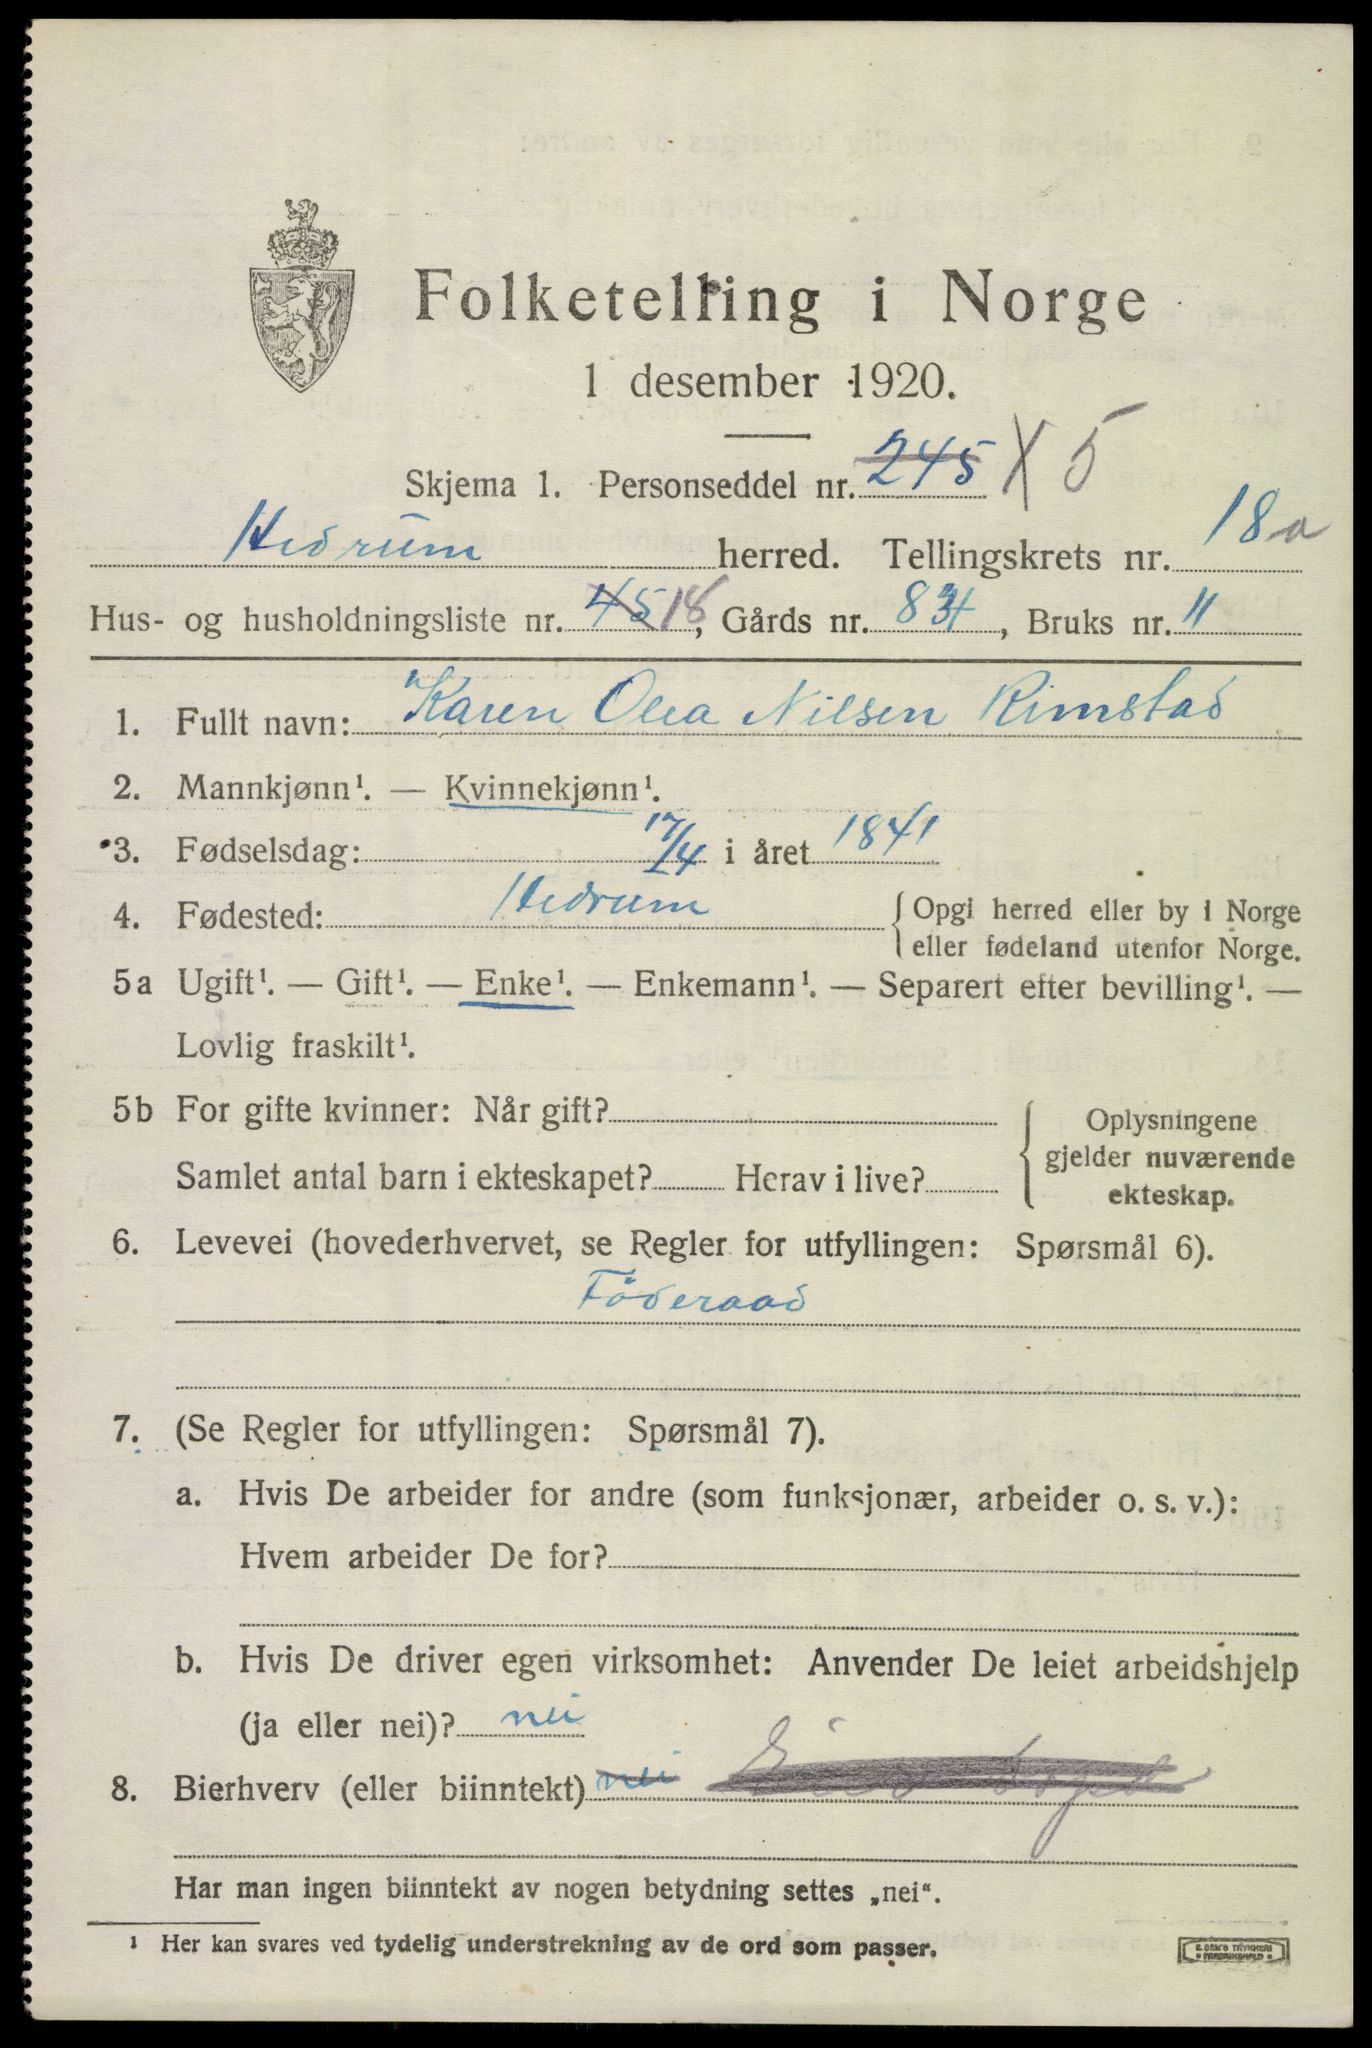 Folketelling i Norge
1 desember 1920.
Skjema 1. Personseddel nr. 245 X 5
Hedrum herred. Tellingskrets nr. 18a
Hus- og husholdningsliste nr. 45 18, Gårds nr. 84, Bruks nr. 11
1. Fullt navn: Karen Olea Nilsen Rimstad
2. Mannkjønn¹. — Kvinnekjønn¹.
3. Fødselsdag: 17/4 i året 1841
4. Fødested: Hedrum { Opgi herred eller by i Norge
eller fødeland utenfor Norge.
5a Ugift¹. — Gift¹. — Enke¹. — Enkemann¹. — Separert efter bevilling¹. —
Lovlig fraskilt¹.
5b For gifte kvinner: Når gift?
Samlet antal barn i ekteskapet? Herav i live?
Oplysningene
gjelder nuværende
ekteskap.
6. Levevei (hovederhvervet, se Regler for utfyllingen: Spørsmål 6).
Föderaad
7. (Se Regler for utfyllingen: Spørsmål 7).
a. Hvis De arbeider for andre (som funksjonær, arbeider o. s. v.):
Hvem arbeider De for?
b. Hvis De driver egen virksomhet: Anvender De leiet arbeidshjelp
(ja eller nei)? nei
8. Bierhverv (eller biinntekt) nei
Har man ingen biinntekt av nogen betydning settes „nei“.
¹ Her kan svares ved tydelig understrekning av de ord som passer.
E. SEM'S TRYKKERI
FREDRIKSHALD